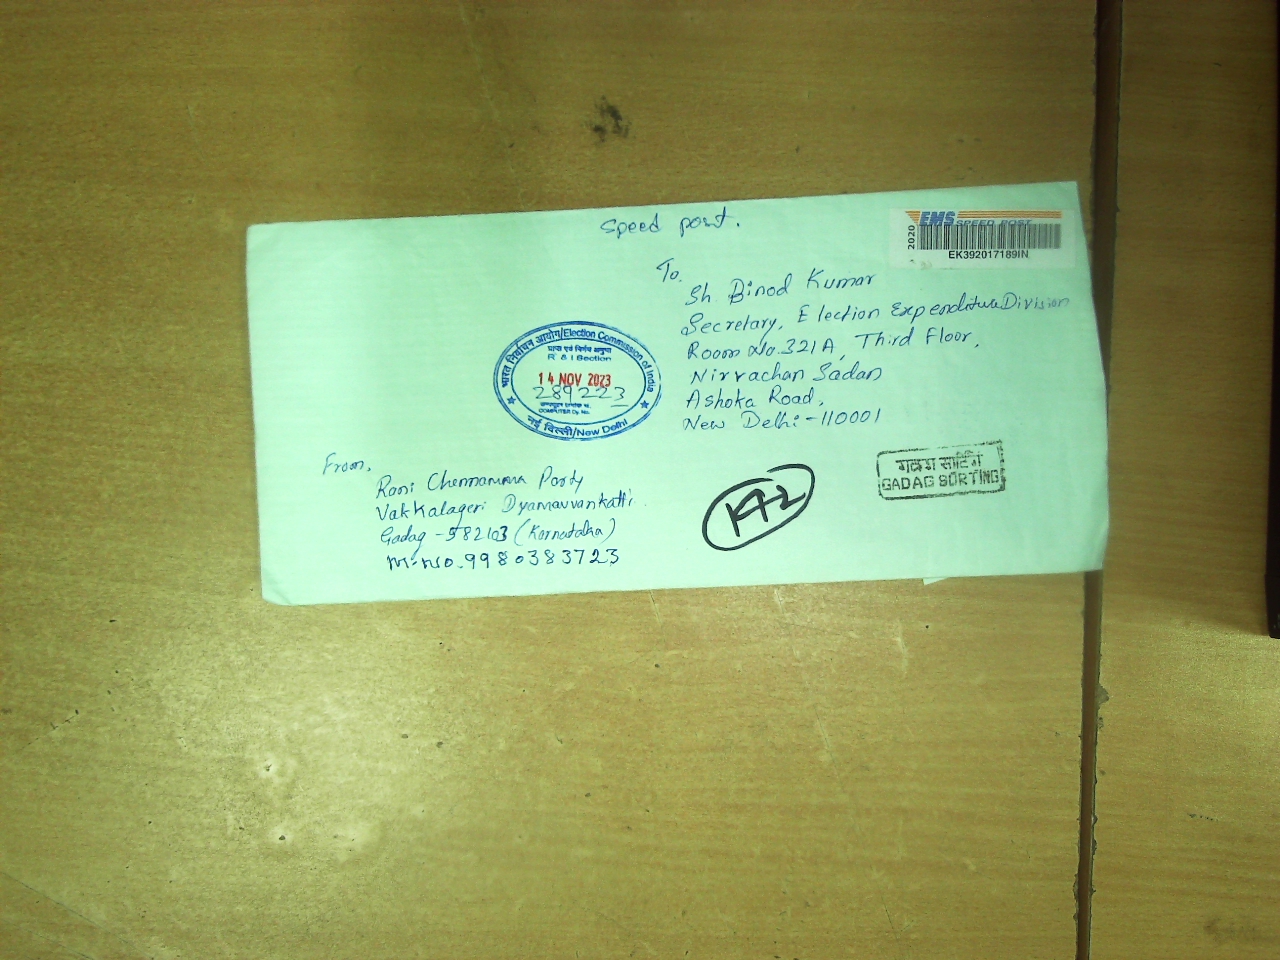 Speed post.
EMS SPEED POST
2020
EK392017189IN
To.
Sh. Binod Kumar
Secretary, Election Expenditure Division
Room No. 321A, Third Floor,
Nirvachan Sadan
Ashoka Road,
New Delhi - 110001
भारत निर्वाचन आयोग/Election Commission of India
R & I Section
14 NOV 2023
289223
COMPUTER Dy. No.
नई दिल्ली/New Delhi
From,
Rani Chennamma Party
Vakkalageri Dyamavvankatti
Gadag - 582103 (Karnataka)
M. No. 9980383723
GADAG SORTING